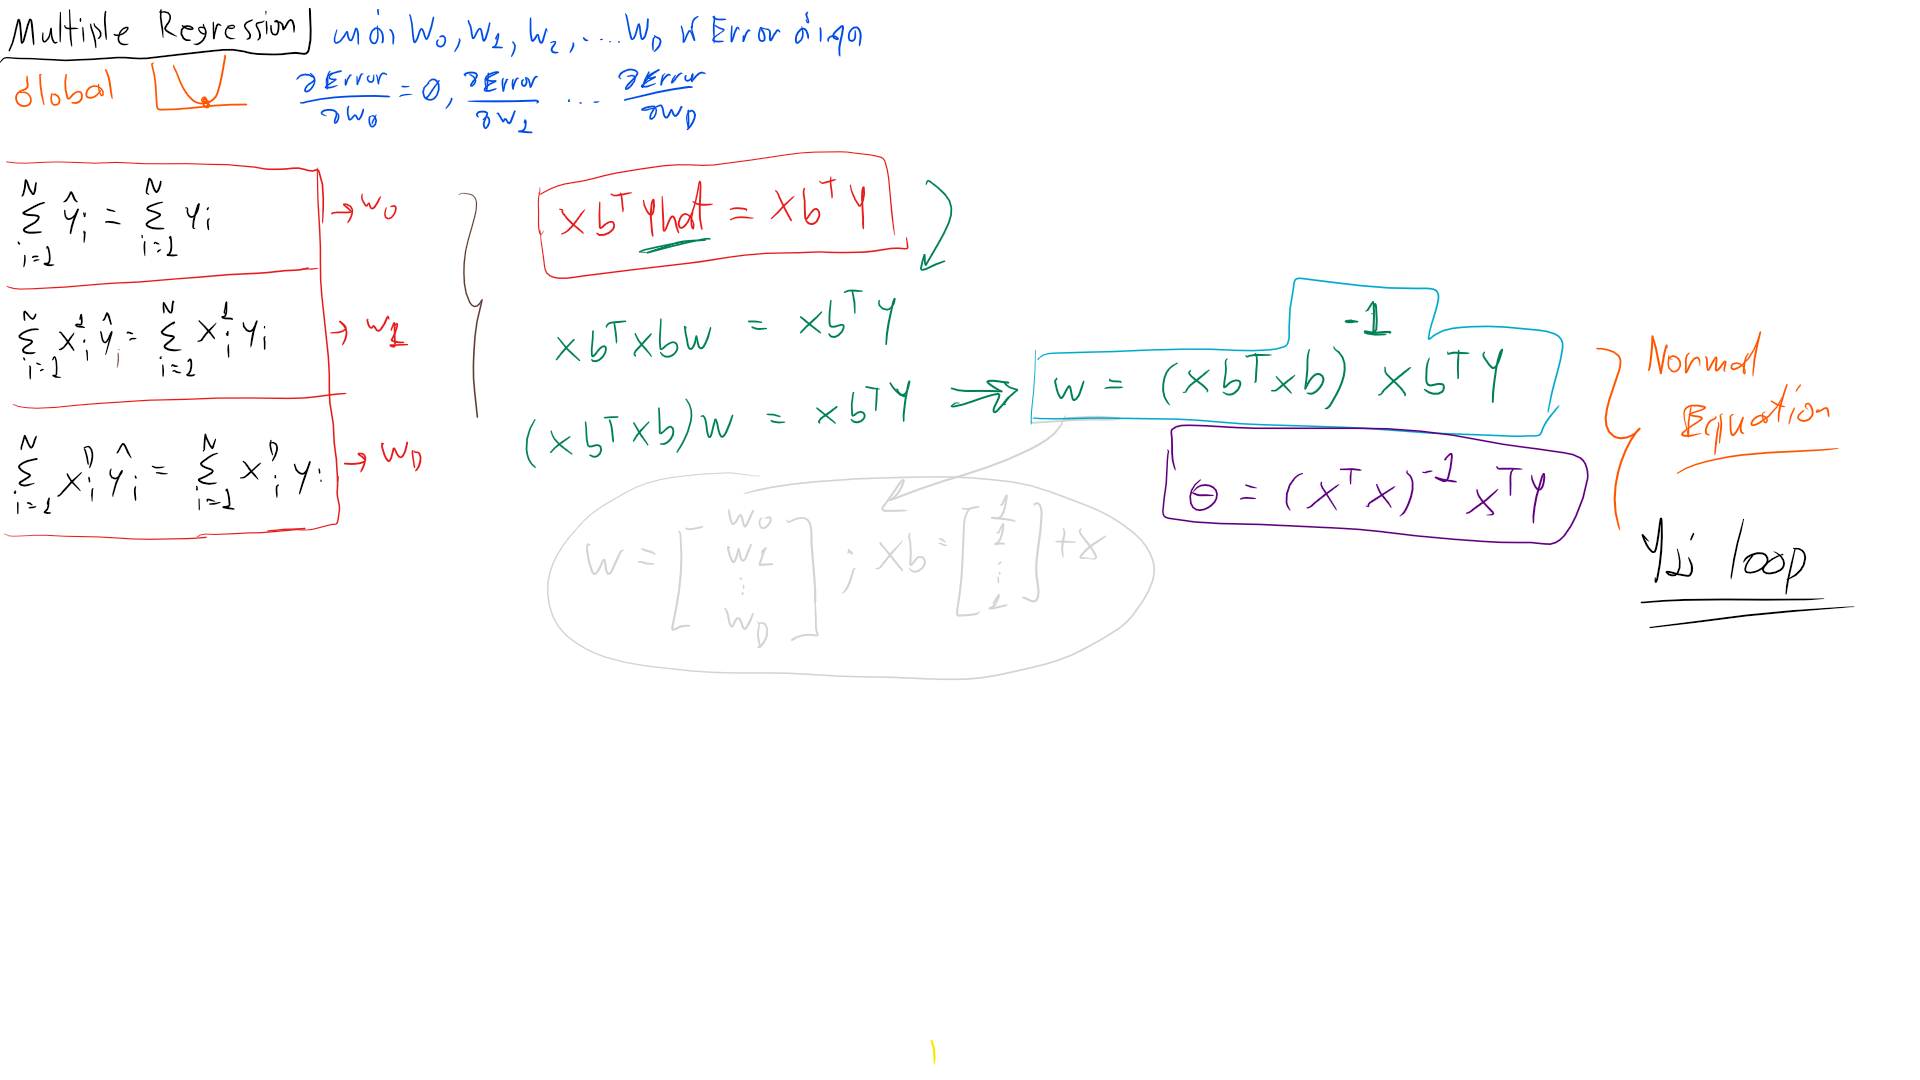 Multiple Regression หาค่า W₀, W₁, W₂, .... W_D ที่ Error ต่ำสุด
Global
∂Error/∂W₀ = 0, ∂Error/∂W₁ ... ∂Error/∂W_D
∑_{i=1}^{N} ŷᵢ = ∑_{i=1}^{N} yᵢ → w₀
∑_{i=1}^{N} xᵢ¹ ŷᵢ = ∑_{i=1}^{N} xᵢ¹ yᵢ → w₁
∑_{i=1}^{N} xᵢᴰ ŷᵢ = ∑_{i=1}^{N} xᵢᴰ yᵢ → w_D
Xbᵀ Yhat = Xbᵀ Y
Xbᵀ Xb W = Xbᵀ Y
(Xbᵀ Xb) W = Xbᵀ Y ⇒ W = (Xbᵀ Xb)⁻¹ Xbᵀ Y
θ = (Xᵀ X)⁻¹ Xᵀ Y
Normal
Equation
W = [W₀ W₁ ⋮ W_D] ; Xb = [1 1 ⋮ 1] + X
loop